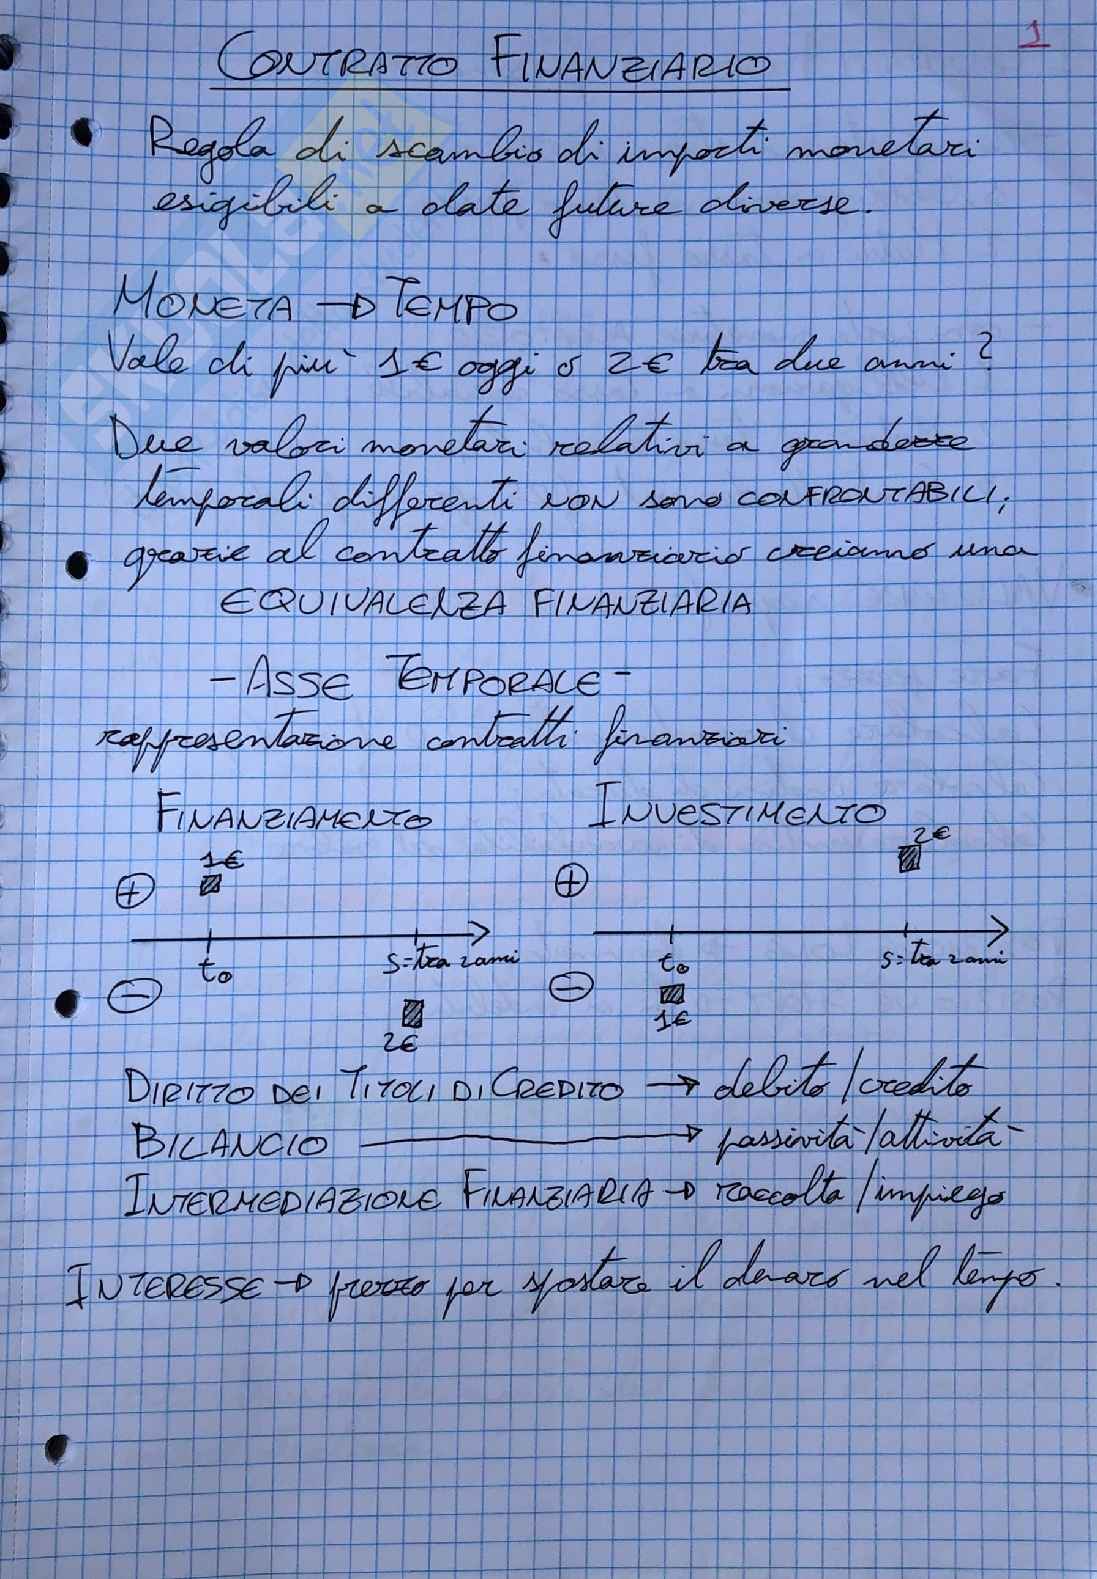 1
CONTRATTO FINANZIARIO
Regola di scambio di importi monetari
esigibili a date future diverse.
MONETA → TEMPO
Vale di più 1€ oggi o 2€ tra due anni?
Due valori monetari relativi a grandezze
temporali differenti NON sono CONFRONTABILI;
grazie al contratto finanziario creiamo una
EQUIVALENZA FINANZIARIA
- ASSE TEMPORALE -
rappresentazione contratti finanziari
FINANZIAMENTO
1€
+
t₀ s=tra 2 anni
-
2€
INVESTIMENTO
2€
+
t₀ s=tra 2 anni
-
1€
DIRITTO DEI TITOLI DI CREDITO → debito/credito
BILANCIO → passività/attività
INTERMEDIAZIONE FINANZIARIA → raccolta/impiego
INTERESSE → prezzo per spostare il denaro nel tempo.
SKUOLA